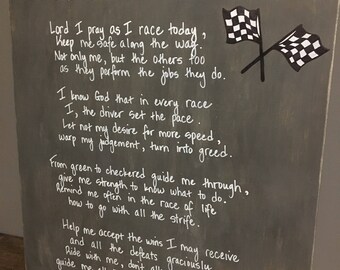 Lord I pray as I race today,
Keep me safe along the way.
Not only me, but the others too
as they perform the jobs they do.
I know God that in every race
I, the driver set the pace.
Let not my desire for more speed,
warp my judgement, turn into greed.
From green to checkered guide me through,
give me strength to know what to do.
Remind me often in the race of life
how to go with all the strife.
Help me accept the wins I may receive
and all the defeats graciously
Ride with me, don't
guide me